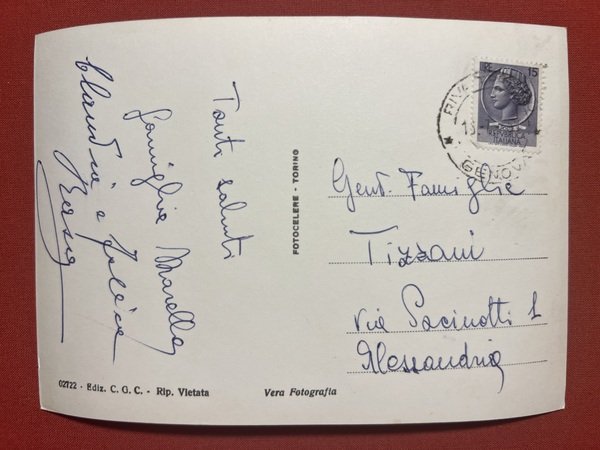 Tanti saluti
famiglia Marella
Claudia e
FOTOCELERE - TORINO
15
REPUBBLICA
ITALIANA
GENOVA
Gent. Famiglie
Tizzani
via Pacinotti 1
Alessandria
02722 - Ediz. C. G. C. - Rip. Vietata
Vera Fotografia